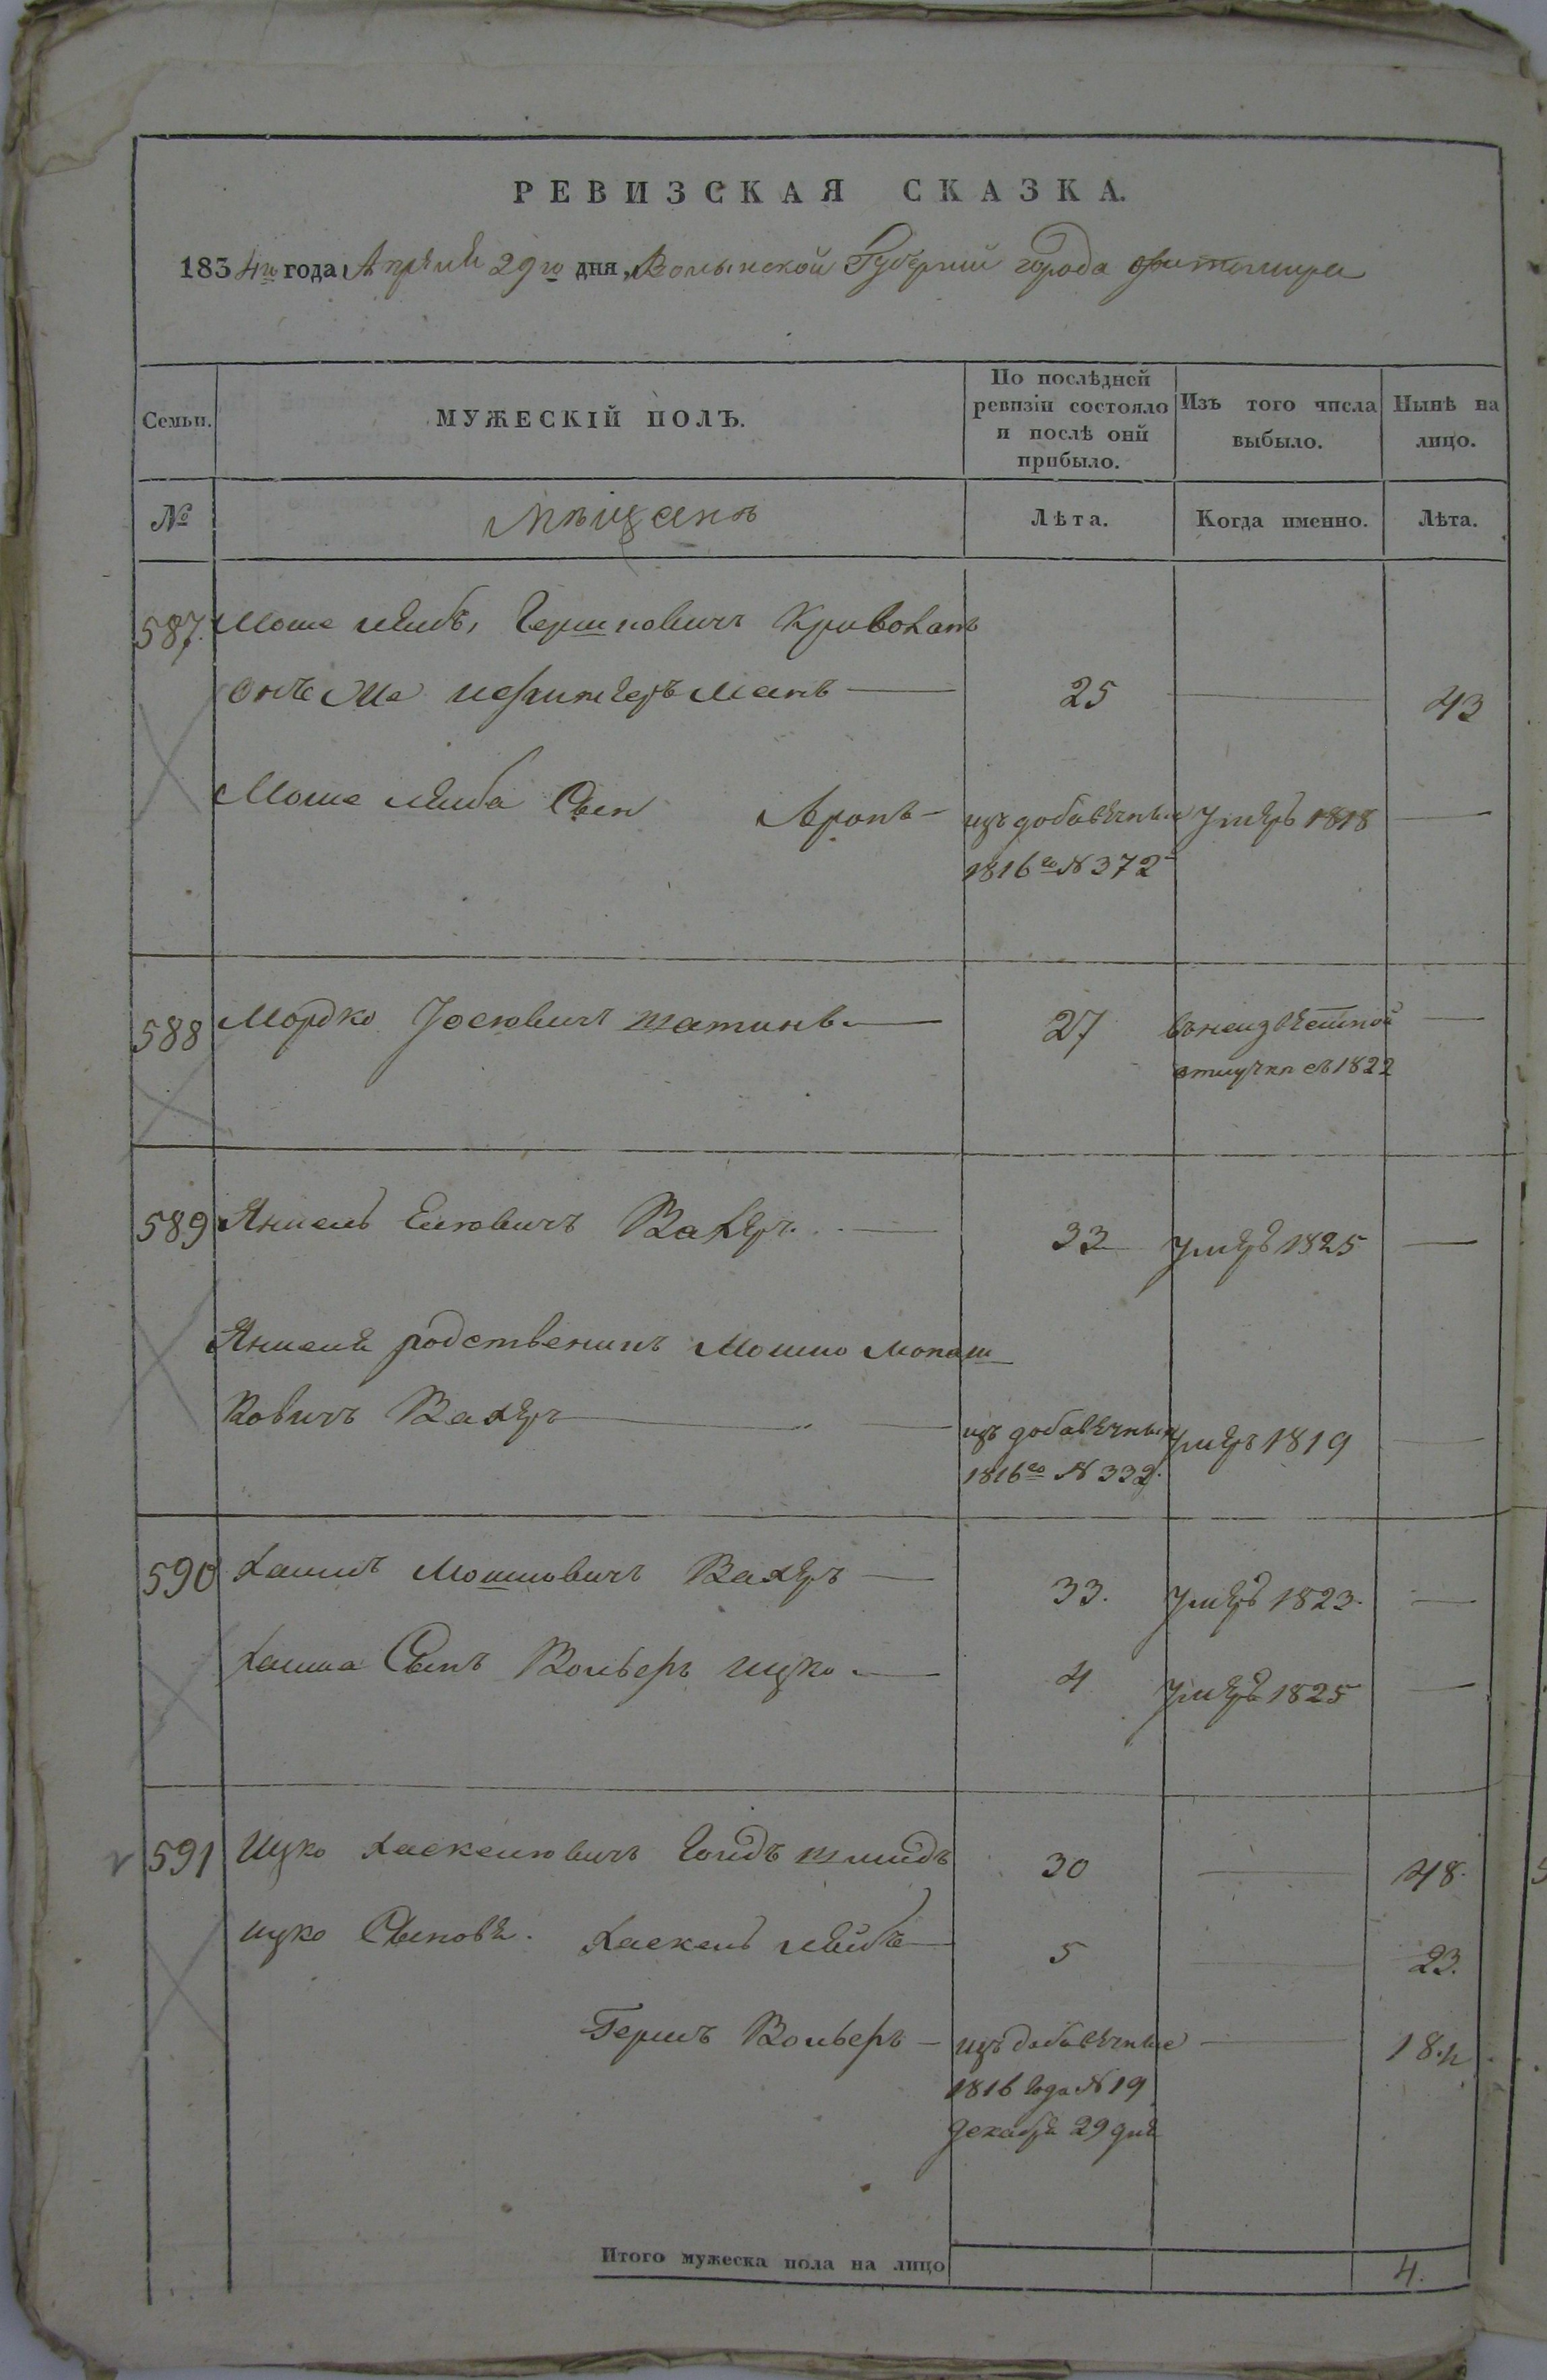 РЕВИЗСКАЯ СКАЗКА.
1834го года Апреля 29го дня, Волынской Губернии города Житомира
Семьи.
МУЖЕСКІЙ ПОЛЪ.
По послѣдней ревизіи состояло и послѣ оній прибыло.
Изъ того числа выбыло.
Нынѣ на лицо.
№
Мѣщанъ
Лѣта.
Когда именно.
Лѣта.
587. Моше Лейбъ, Гершковичъ
онъ же 25 43
Моше Лейба Сын Аронъ изъ добавочныхъ умеръ 1818
1816го № 372
588 Мордко Iосіовичъ 27 въ неизвестной
отлучки съ 1822
589 Аншель Еліовичъ Вахеръ 33 умеръ 1825
Аншеля родственикъ Мошко Монаш
ковичъ Вахеръ изъ добавочныхъ умеръ 1819
1816го № 332.
590 Хаимъ Мошковичъ Вахеръ 33. умеръ 1823.
Хаима Сынъ Вольверъ Ицко 4 умеръ 1825
591 Ицко Хаскеліовичъ Голдъшмидъ 30 48.
Ицко Сыновя. Хаскель Лейбъ 5 23.
Гершъ Вольверъ изъ добавочные 18.
1816 года № 19
декабря 29 дня
Итого мужеска пола на лицо 4.